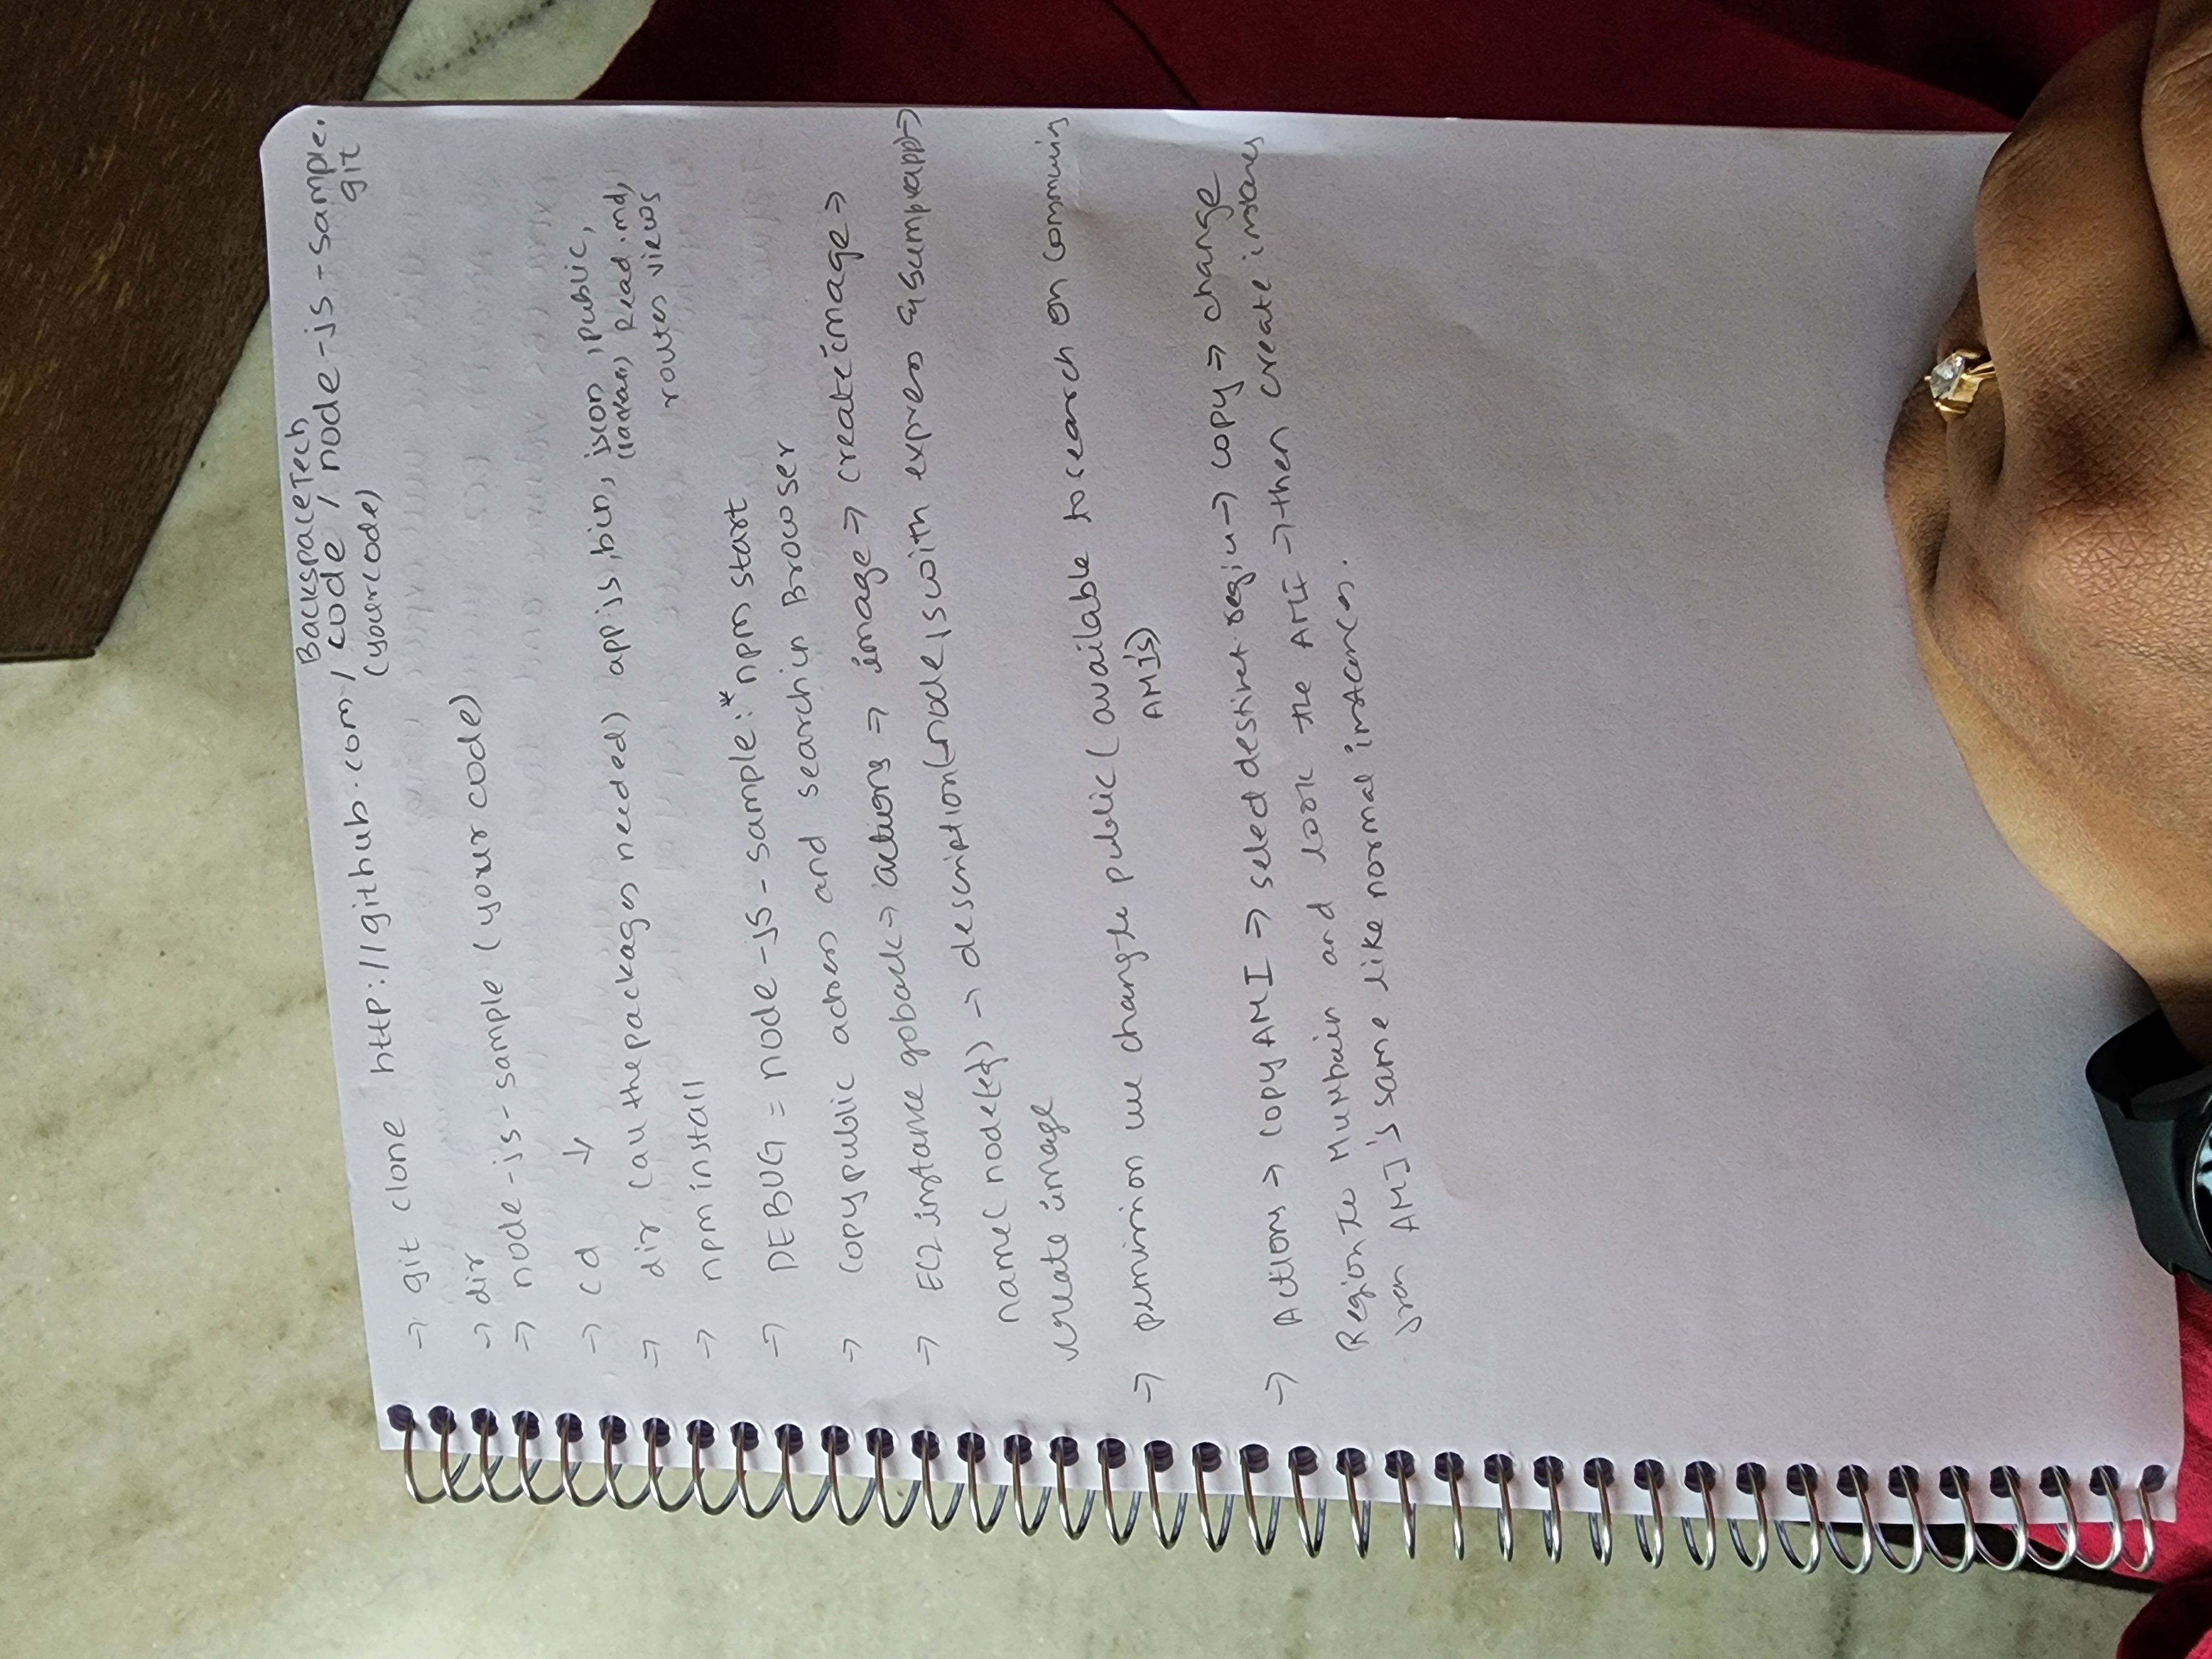 BackspaceTech
→ git clone http://github.com/code/node-js-sample.
(yourcode) git
→ dir
→ node-js-sample (your code)
→ cd ↓
→ dir (all the packages needed) app js, bin, json, public,
Read.md,
routes views
→ npm install
→ DEBUG = node-js-sample:* npm start
→ copy public adress and search in Browser
→ EC2 instance goback → actions → image → create image →
name( node → description( node js with express & sample app) →
create image
→ permission we change to public ( available to search on community
AMI's)
→ Actions → copy AMI → select destinet region → copy → change
Region to Mumbain and look the AMI → then create instances
from AMI's same like normal instances.